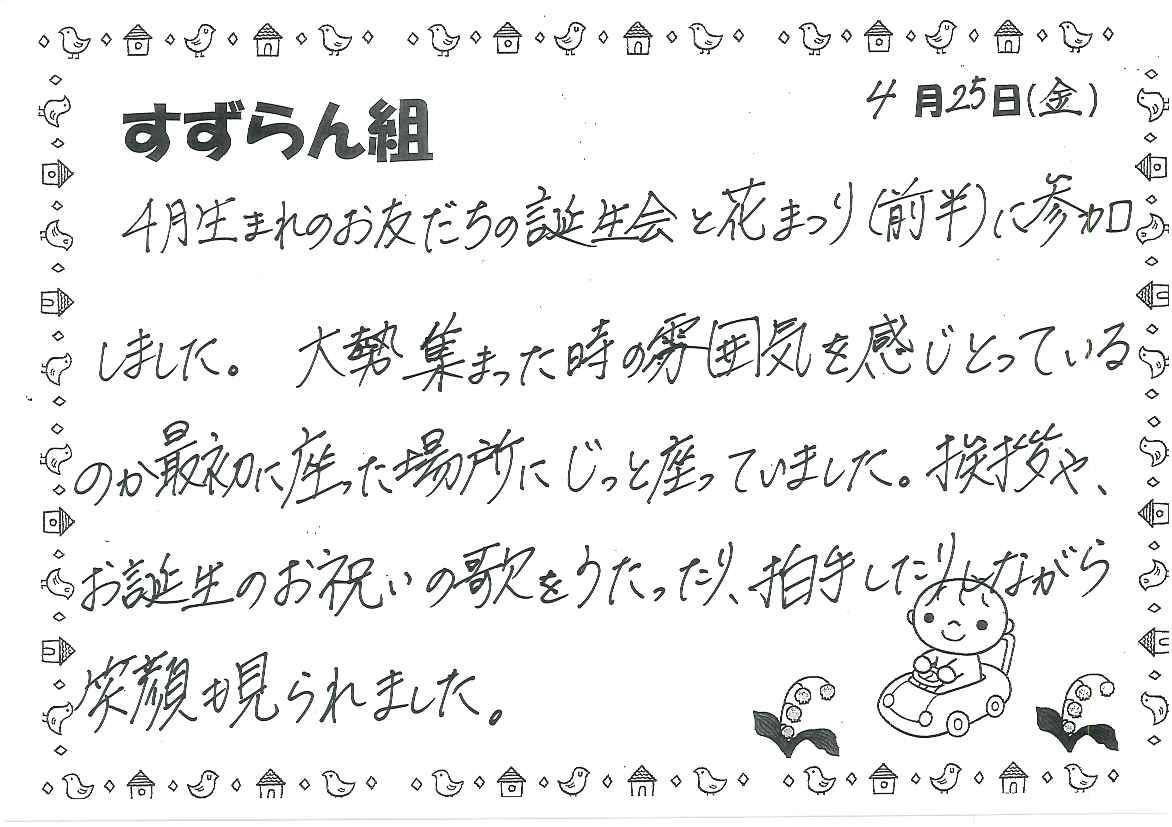 4月25日(金)
すずらん組
4月生まれのお友だちの誕生会と花まつり(前半)に参加
しました。 大勢集まった時の雰囲気を感じとっている
のか最初に座った場所にじっと座っていました。挨拶や、
お誕生のお祝いの歌をうたったり、拍手したりしながら
笑顔も見られました。